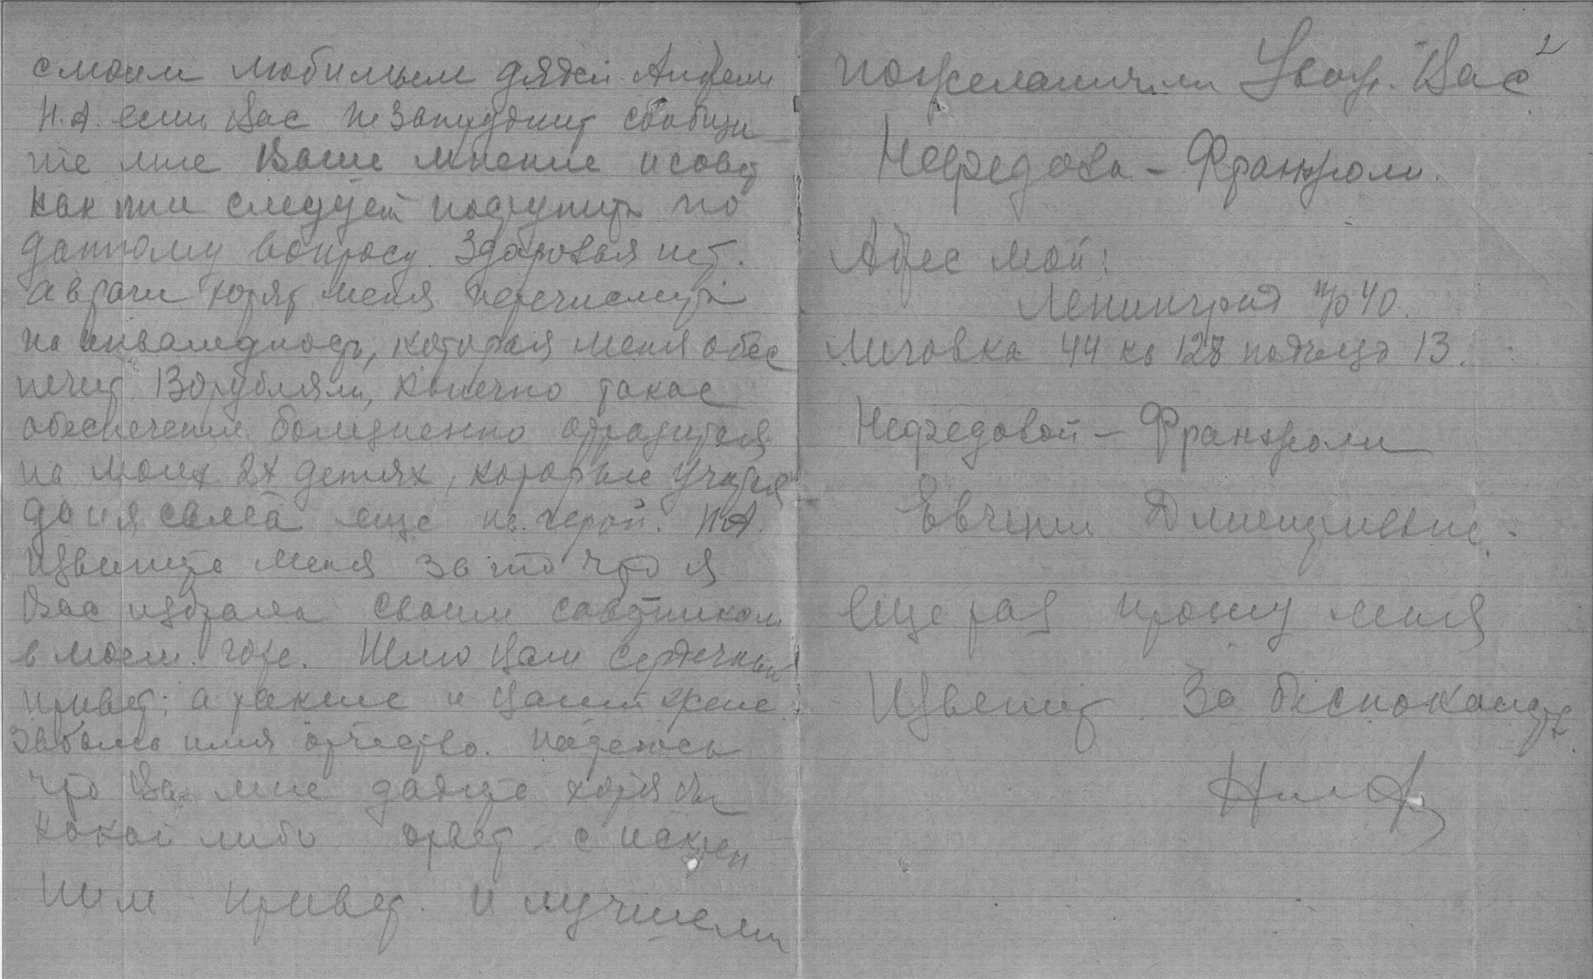 с моим любимым дядей Андреем
Н.А. если Вас не затруднит сообщи
те мне Ваше мнение и совет
как мне следует поступить по
данному вопросу. Здоровья нет.
а врачи хотят меня перечислить
на инвалидность, которая меня обес
печит 130 рублями, конечно такое
обеспечение болезненно отразится
на моих 2х детях, которые учатся
да и я сама еще не герой. Н.А.
Извените меня за то что я
Вас избрала своим советником
в моем горе. Шлю Вам сердечный
привет: а также и Вашей жене.
Забыла имя отчество. Надеюсь
что Вы мне дадите хотя бы
какой либо ответ. с искрен
ним привет. и лучшем
2
пожеланиями Уваж. Вас
Нефедова - Франжоли.
Адрес мой:
Ленинград п/о 40.
Лиговка 44 кв 128 подъезд 13.
Нефедовой - Франжоли
Евгении Дмитриевне.
Еще раз прошу меня
Извенит За беспокойств